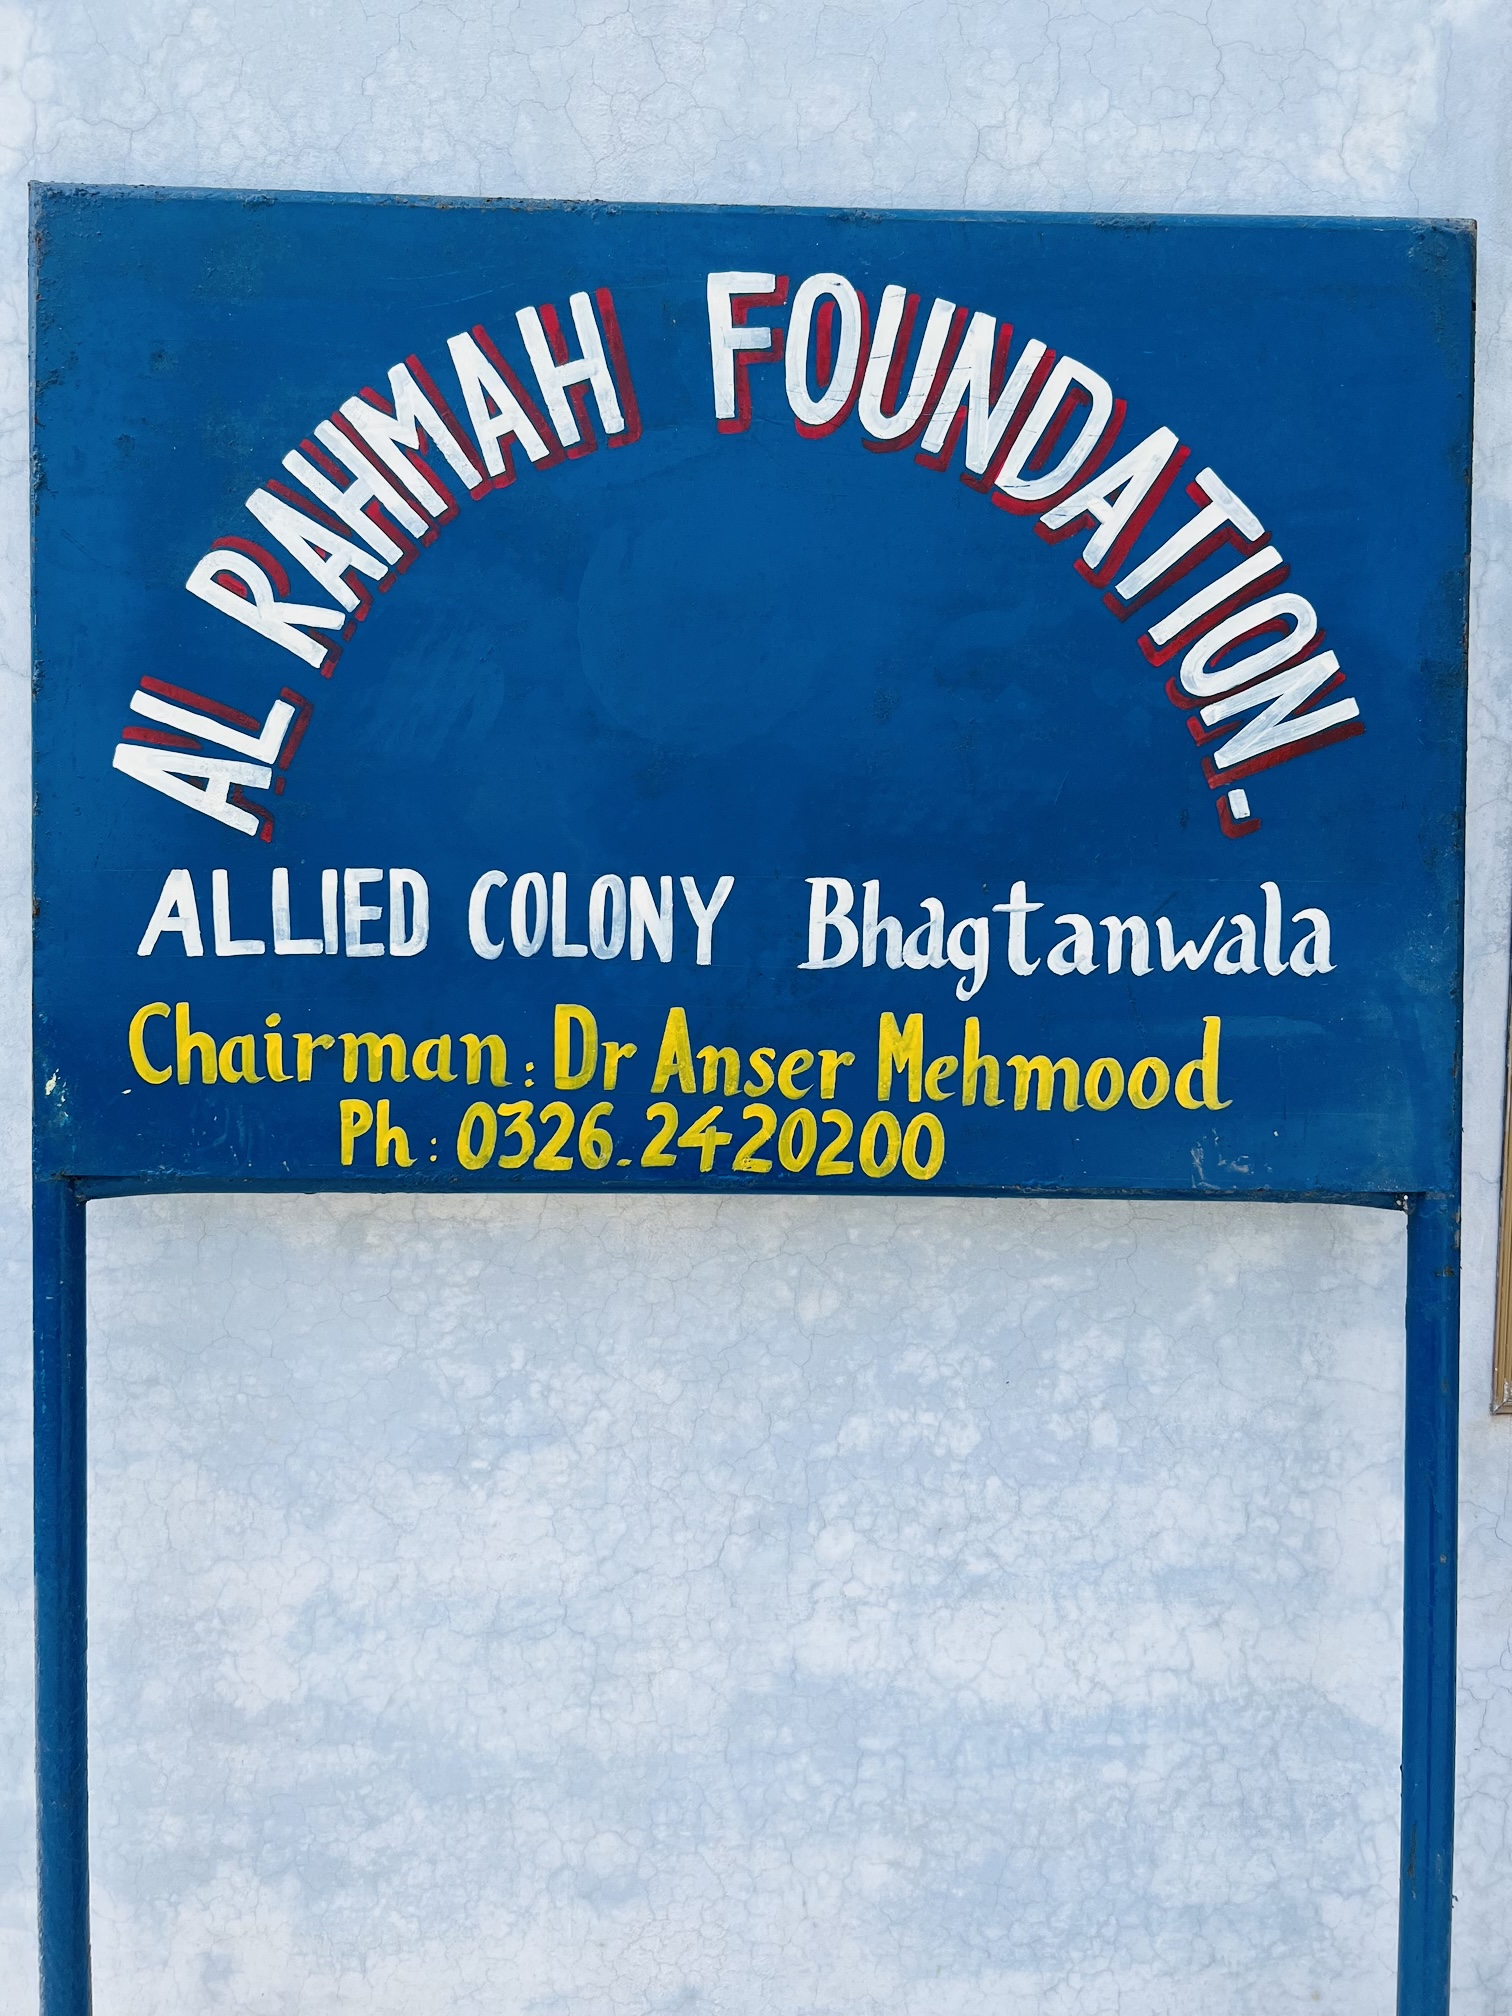 AL RAHMAH FOUNDATION.
ALLIED COLONY Bhagtanwala
Chairman: Dr Anser Mehmood
Ph: 0326.2420200